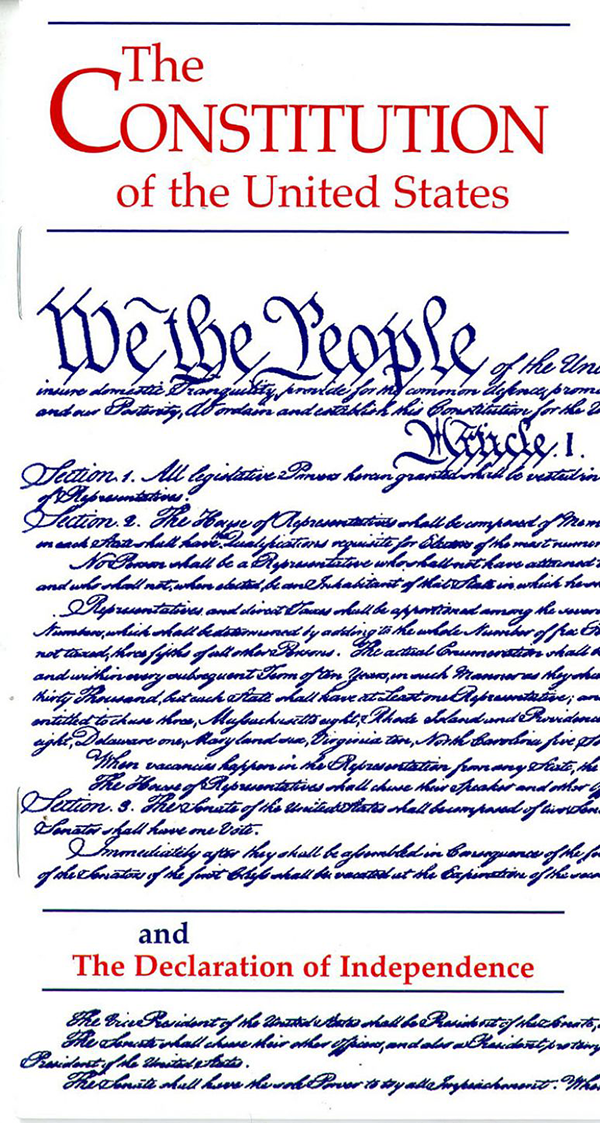 The
CONSTITUTION
of the United States
We the People of the Uni
insure domestic Tranquility, provide for the common defence, promo
and our Posterity, do ordain and establish this Constitution for the U
Article. I.
Section. 1. All legislative Powers herein granted shall be vested in
of Representatives.
Section. 2. The House of Representatives shall be composed of Mem
in each State shall have Qualifications requisite for Electors of the most numer
No Person shall be a Representative who shall not have attained t
and who shall not, when elected, be an Inhabitant of that State in which he sh
Representatives and direct Taxes shall be apportioned among the severa
Numbers, which shall be determined by adding to the whole Number of free
not taxed, three fifths of all other Persons. The actual Enumeration shall b
and within every subsequent Term of ten Years, in such Manner as they sha
thirty Thousand, but each State shall have at Least one Representative; an
entitled to chuse three, Massachusetts eight, Rhode Island and Providence
eight, Delaware one, Maryland six, Virginia ten, North Carolina five, So
When vacancies happen in the Representation from any State, the
The House of Representatives shall chuse their Speaker and other O
Section. 3. The Senate of the United States shall be composed of two Sena
Senator shall have one Vote.
Immediately after they shall be assembled in Consequence of the fi
of the Senators of the first Class shall be vacated at the Expiration of the seco
and
The Declaration of Independence
The Vice President of the United States shall be President of the Senate,
The Senate shall chuse their other Officers, and also a President pro temp
President of the United States.
The Senate shall have the sole Power to try all Impeachments. Whe